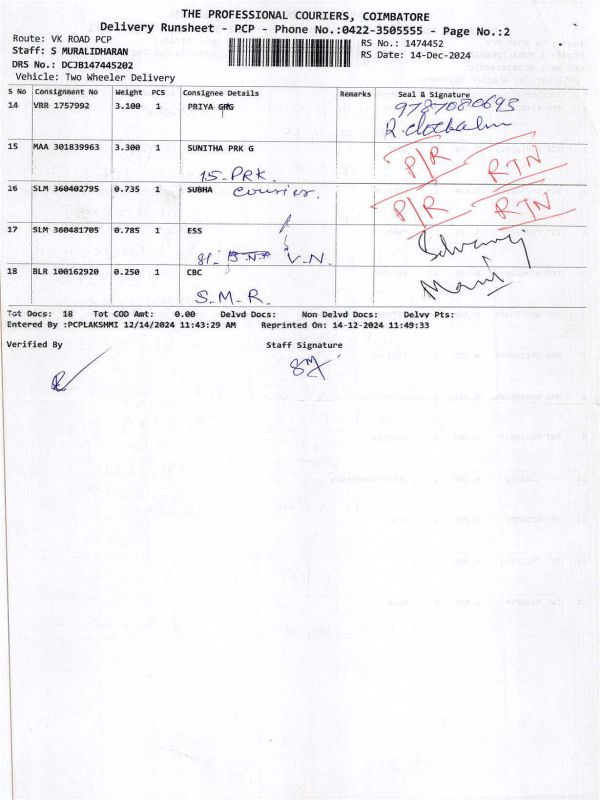 THE PROFESSIONAL COURIERS, COIMBATORE
Delivery Runsheet - PCP - Phone No.:0422-3505555 - Page No.:2
Route: VK ROAD PCP RS No.: 1474452
Staff: S MURALIDHARAN RS Date: 14-Dec-2024
DRS No.: DCJB147445202
Vehicle: Two Wheeler Delivery
S No Consignment No Weight PCS Consignee Details Remarks Seal & Signature
14 VRR 1757992 3.100 1 PRIYA GRG 9787080693
15 MAA 301839963 3.300 1 SUNITHA PRK G P/R RTN
15-PRK.
16 SLM 360402795 0.735 1 SUBHA courier. P/R RTN
17 SLM 360481705 0.785 1 ESS
81. V.N.
18 BLR 100162920 0.250 1 CBC Mani
S.M.R.
Tot Docs: 18 Tot COD Amt: 0.00 Delvd Docs: Non Delvd Docs: Delvy Pts:
Entered By :PCPLAKSHMI 12/14/2024 11:43:29 AM Reprinted On: 14-12-2024 11:49:33
Verified By Staff Signature